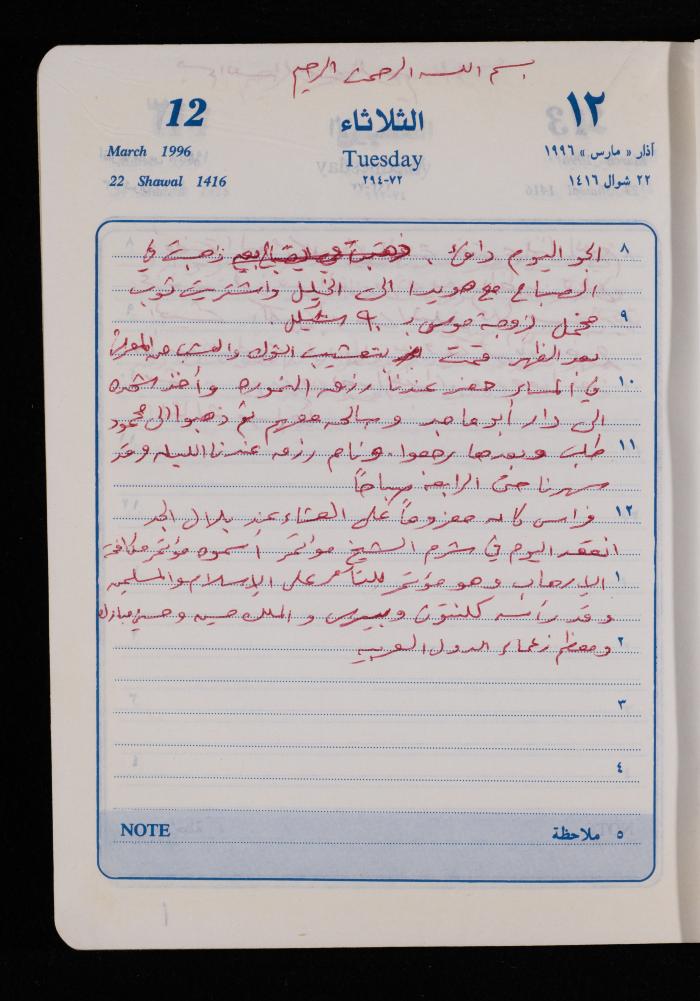 بسم الله الرحمن الرحيم
12
March 1996
22 Shawal 1416
الثلاثاء
Tuesday
٧٢-٢٩٤
١٢
آذار « مارس » ١٩٩٦
٢٢ شوال ١٤١٦
٨ الجو اليوم دافئ . ذهبت في
الصباح مع هويدا الى الخليل واشتريت ثوب
٩ مخمل لزوجة موسى بـ ٩٠ شيكل .
بعد الظهر قمت بتعشيب الشوك والعشب من
١٠ في المساء حضر عندنا رزق النموره وأخذ
الى دار أبو ماجد و معهم ثم ذهبوا الى محمود
١١ طلب وبعدها رجعوا. ونام رزق عندنا الليله وقد
سهرنا حتى الرابعة صباحاً
١٢ فراس كان معزوماً على العشاء عند بلال
انعقد اليوم في شرم الشيخ مؤتمر اسموه مؤتمر مكافحة
١ الإرهاب وهو مؤتمر للتآمر على الإسلام والمسلمين
وقد رأسه كلنتون وبيرس و الملك حسين وحسني مبارك
٢ ومعظم زعماء الدول العربيه
٣
٤
NOTE
٥ ملاحظة